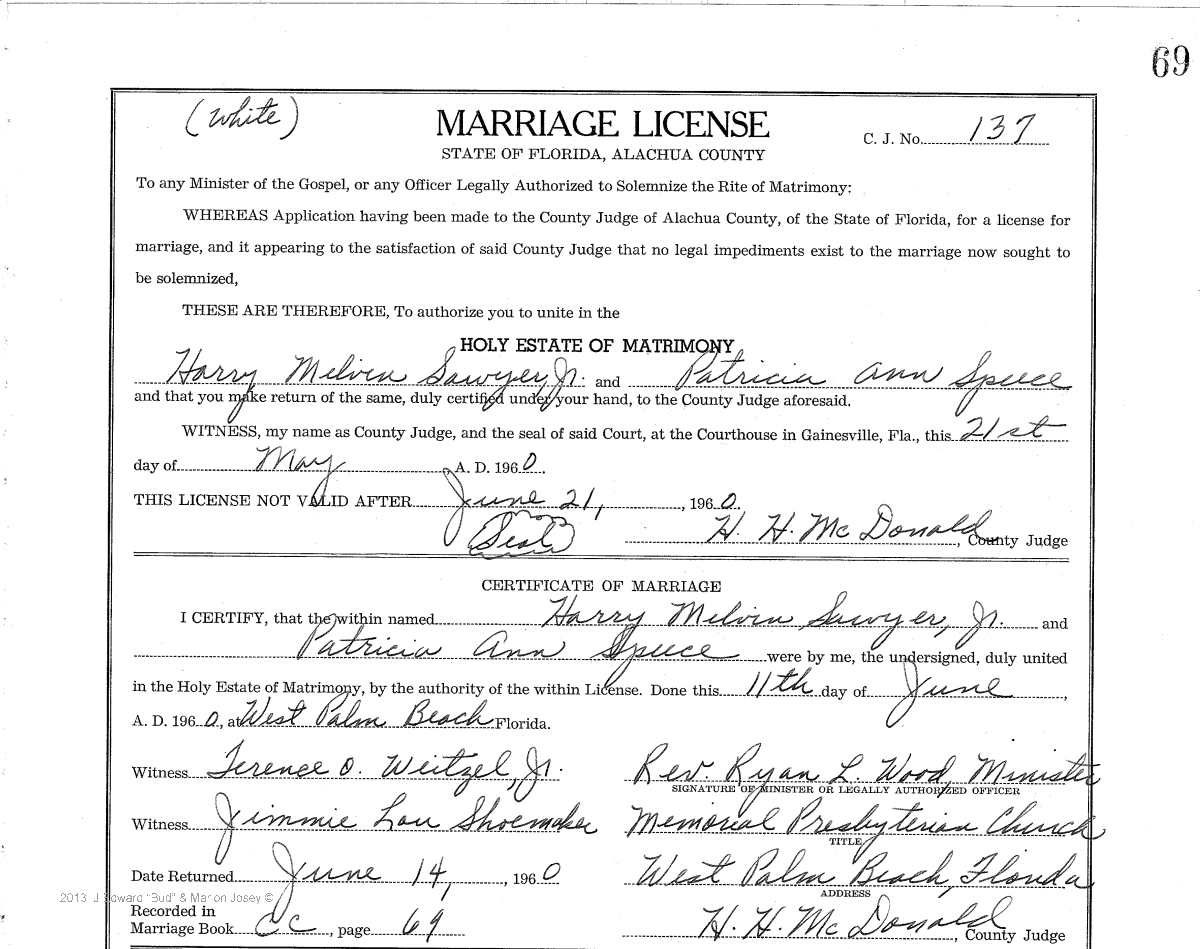 69
(White)
MARRIAGE LICENSE
C. J. No. 137
STATE OF FLORIDA, ALACHUA COUNTY
To any Minister of the Gospel, or any Officer Legally Authorized to Solemnize the Rite of Matrimony:
WHEREAS Application having been made to the County Judge of Alachua County, of the State of Florida, for a license for
marriage, and it appearing to the satisfaction of said County Judge that no legal impediments exist to the marriage now sought to
be solemnized,
THESE ARE THEREFORE, To authorize you to unite in the
HOLY ESTATE OF MATRIMONY
Harry Melvin Sawyer, Jr. and Patricia Ann Speece
and that you make return of the same, duly certified under your hand, to the County Judge aforesaid.
WITNESS, my name as County Judge, and the seal of said Court, at the Courthouse in Gainesville, Fla., this 21st
day of May A. D. 1960.
THIS LICENSE NOT VALID AFTER June 21, , 1960
(Seal) H. H. McDonald, County Judge
CERTIFICATE OF MARRIAGE
I CERTIFY, that the within named Harry Melvin Sawyer, Jr. and
Patricia Ann Speece were by me, the undersigned, duly united
in the Holy Estate of Matrimony, by the authority of the within License. Done this 11th day of June,
A. D. 1960, at West Palm Beach Florida.
Witness Terence O. Weitzel, Jr. Rev. Ryan L. Wood, Minister
SIGNATURE OF MINISTER OR LEGALLY AUTHORIZED OFFICER
Witness Jimmie Lou Shoemaker Memorial Presbyterian Church
TITLE
Date Returned June 14, , 1960 West Palm Beach, Florida
ADDRESS
2013 J Edward "Bud" & Marion Josey ©
Recorded in
Marriage Book CC, page 69 H. H. McDonald, County Judge